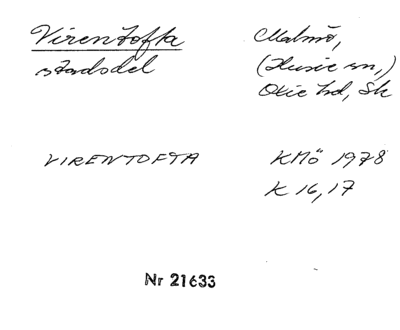 Virentofta
stadsdel
Malmö,
(Husie sn,)
Oxie hd, Sk
VIRENTOFTA
KMÖ 1978
K 16, 17
Nr 21633